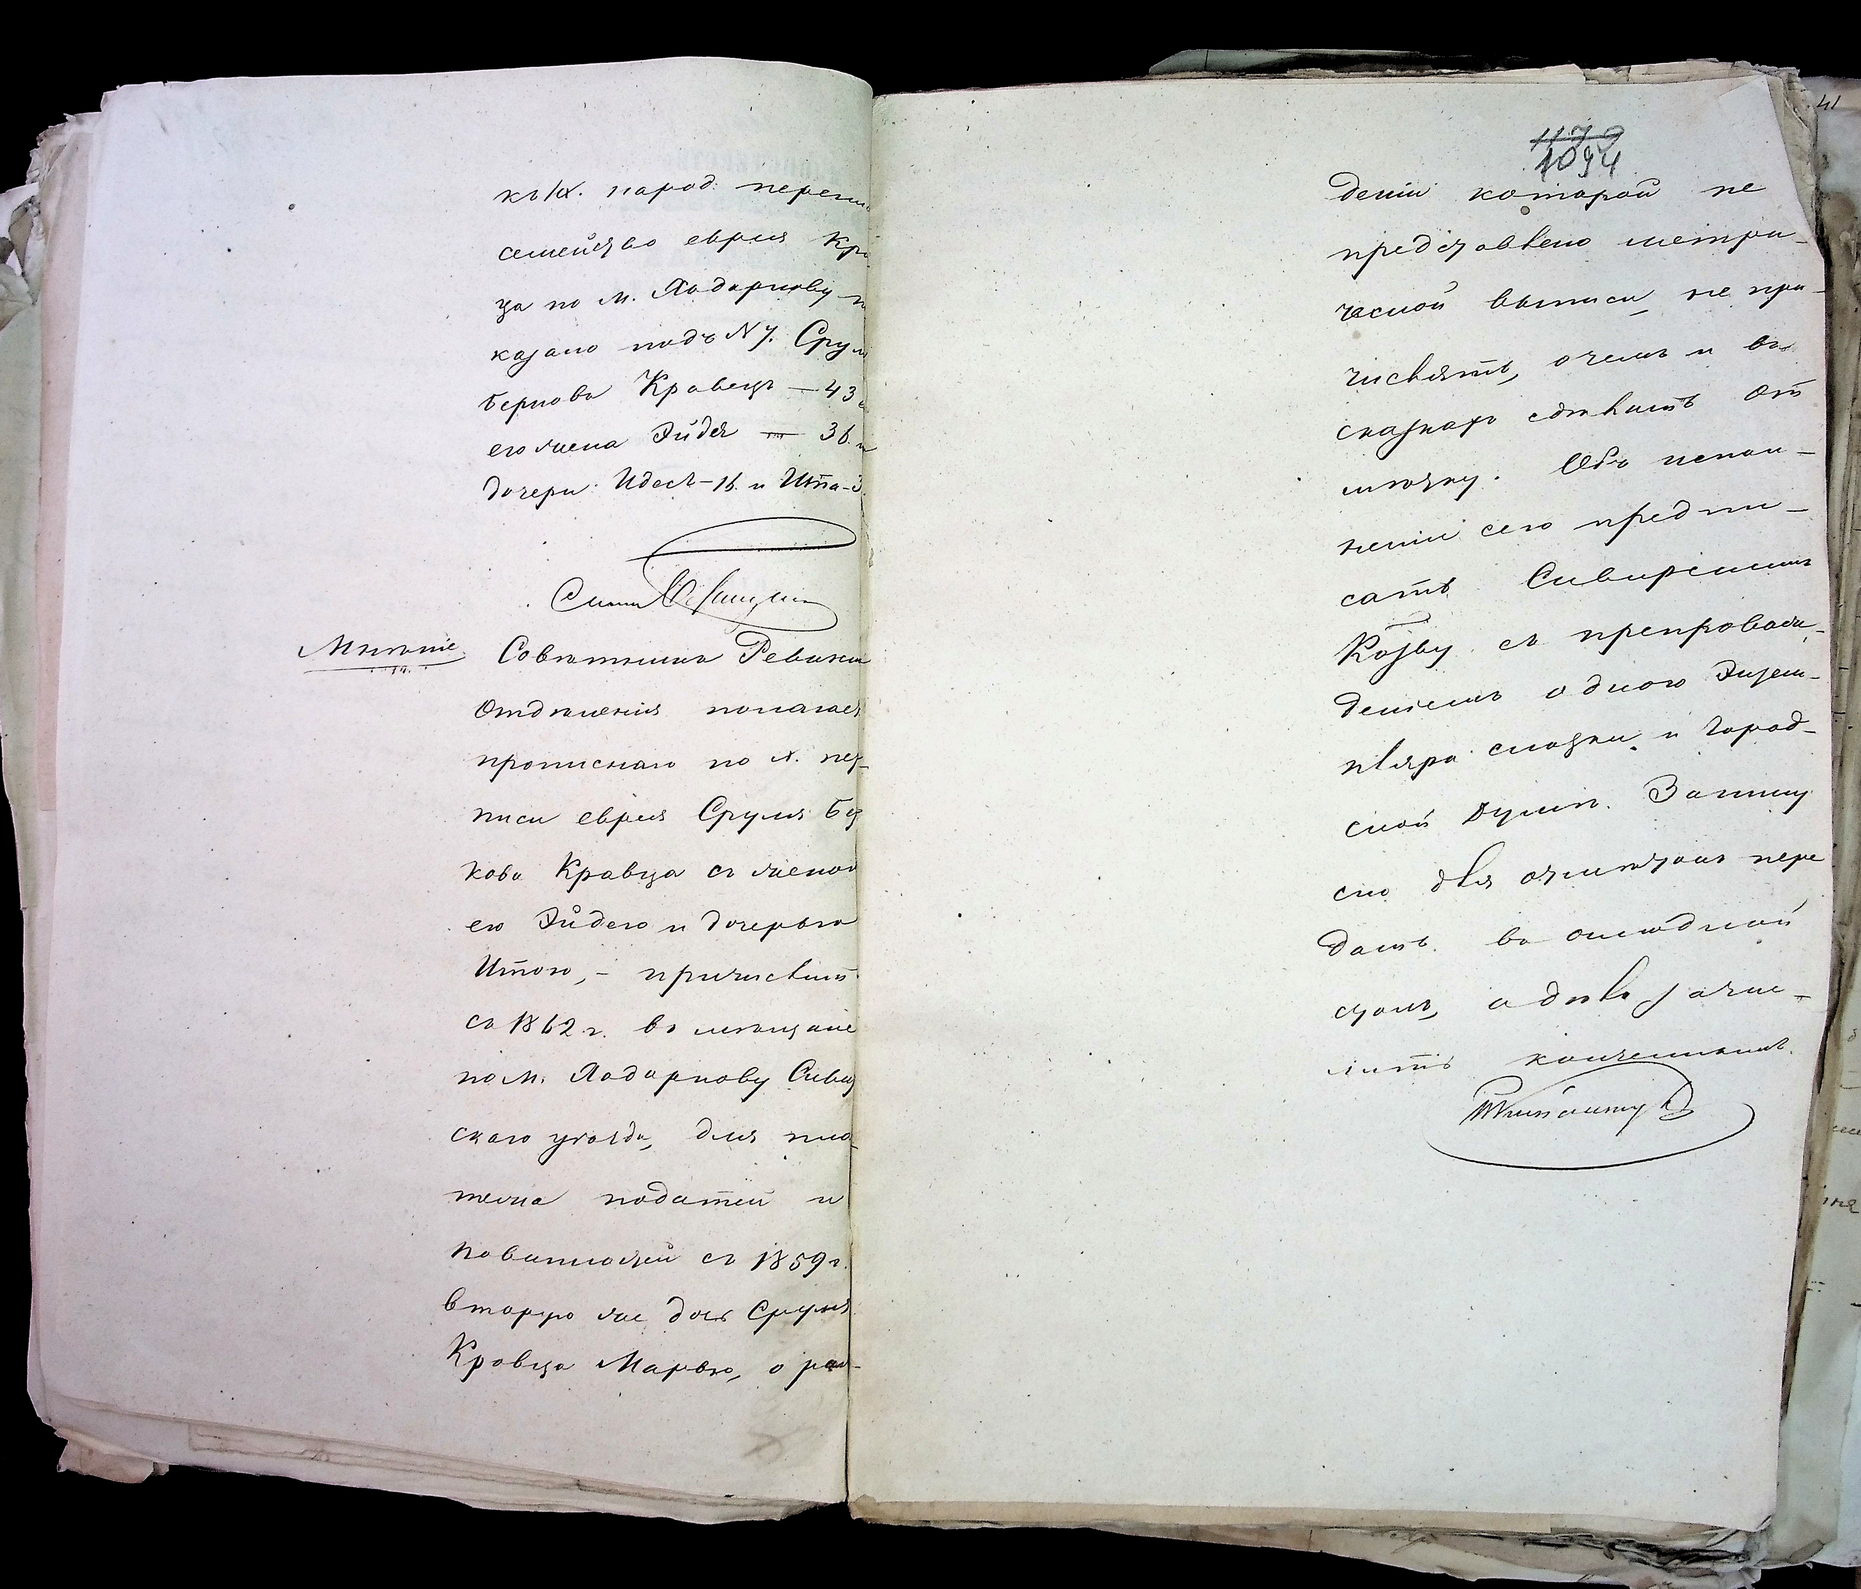 къ IX. народ. переп
семейство еврея Кра
ца по м. Ладарнову п
казано подъ N 7. Сруль
Беркова Кравецъ — 43
его жена Эйдля — 36 и
дочери: Идесъ — 16. и Ита — 3
Мнѣніе
Совѣтникъ Ревизк
Отдѣленія полагает
прописнаго по X. пер-
писи еврея Сруля Бер
кова Кравца съ женою
его Эйдею и дочерью
Итою, — причислить
съ 1862 г. въ мѣщане
по м. Ладарнову Сквир
скаго уѣзда, для пла-
тежа податей и
повинностей съ 1859 г.
вторую же дочь Сруля
Кравца Марью, о рож-
1179
1094
деніи которой не
представлено метри-
ческой выписи, не при-
числять, о чемъ и въ
сказкахъ сдѣлать от
мѣтку. Объ испол-
неніи сего предпи-
сать Сквирскимъ
Казву. съ препровож-
деніемъ одного экзем-
пляра сказки и Город-
ской Думѣ. Записку
сію для отмѣтокъ пере
дать во окладной
столъ, а дѣло зачис-
лить конченнымъ.